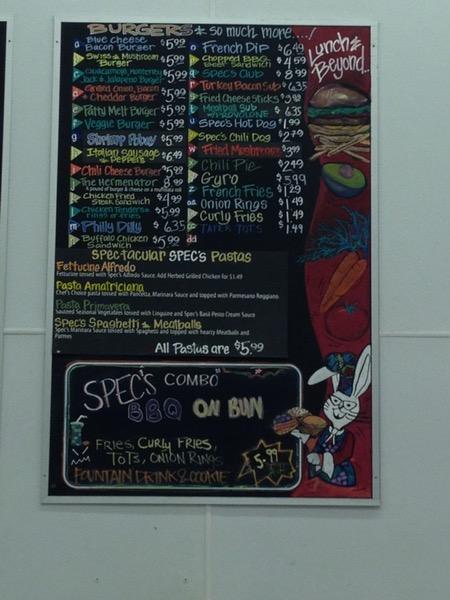 BURGERS & so much more....!
Lunch & Beyond..
a Blue Cheese Bacon Burger $5.99
Swiss & Mushroom Burger $5.99
Guacamole, Monterey Jack & Jalapeno Burger $5.99
Grilled Onion, Bacon & Cheddar Burger $5.99
Patty Melt Burger $5.99
Veggie Burger $5.99
Shrimp Poboy $5.99
Italian Sausage & Peppers 6.49
Chili Cheese Burger $5.99
The Hermenator 8.99
Chicken Fried Steak Sandwich $4.99
Chicken Tenders rings or fries $5.99
m Philly Dilly $6.35
Buffalo Chicken Sandwich $5.99
French Dip $6.49
Chopped BBQ Beef Sandwich $4.59
Spec's Club $8.99
Turkey Bacon Sub 6.35
Fried Cheese Sticks
Meatball Sub w/ Provolone 6.35
Spec's Hot Dog $1.99
Spec's Chili Dog $2.79
w Fried Mushrooms
Chili Pie $2.49
Gyro $5.99
z French Fries $1.29
Onion Rings $1.49
Curly Fries $1.49
Tater Tots $1.49
dd
Spectacular SPEC'S Pastas
Fettucine Alfredo
Fettucine tossed with Spec's Alfredo Sauce. Add Herbed Grilled Chicken for $1.49
Pasta Amatriciana
Chef's Choice pasta tossed with Pancetta, Marinara Sauce and topped with Parmesano Reggiano.
Pasta Primavera
Sauteed Seasonal Vegetables tossed with Linguine and Spec's Basil Pesto Cream Sauce
Spec's Spaghetti & Meatballs
Spec's Marinara Sauce tossed with Spaghetti and topped with hearty Meatballs and
Parmes
All Pastas are $5.99
SPEC'S COMBO
BBQ ON BUN
FRIES, CURLY FRIES,
TOTS, ONION RINGS
FOUNTAIN DRINK & COOKIE
5.99